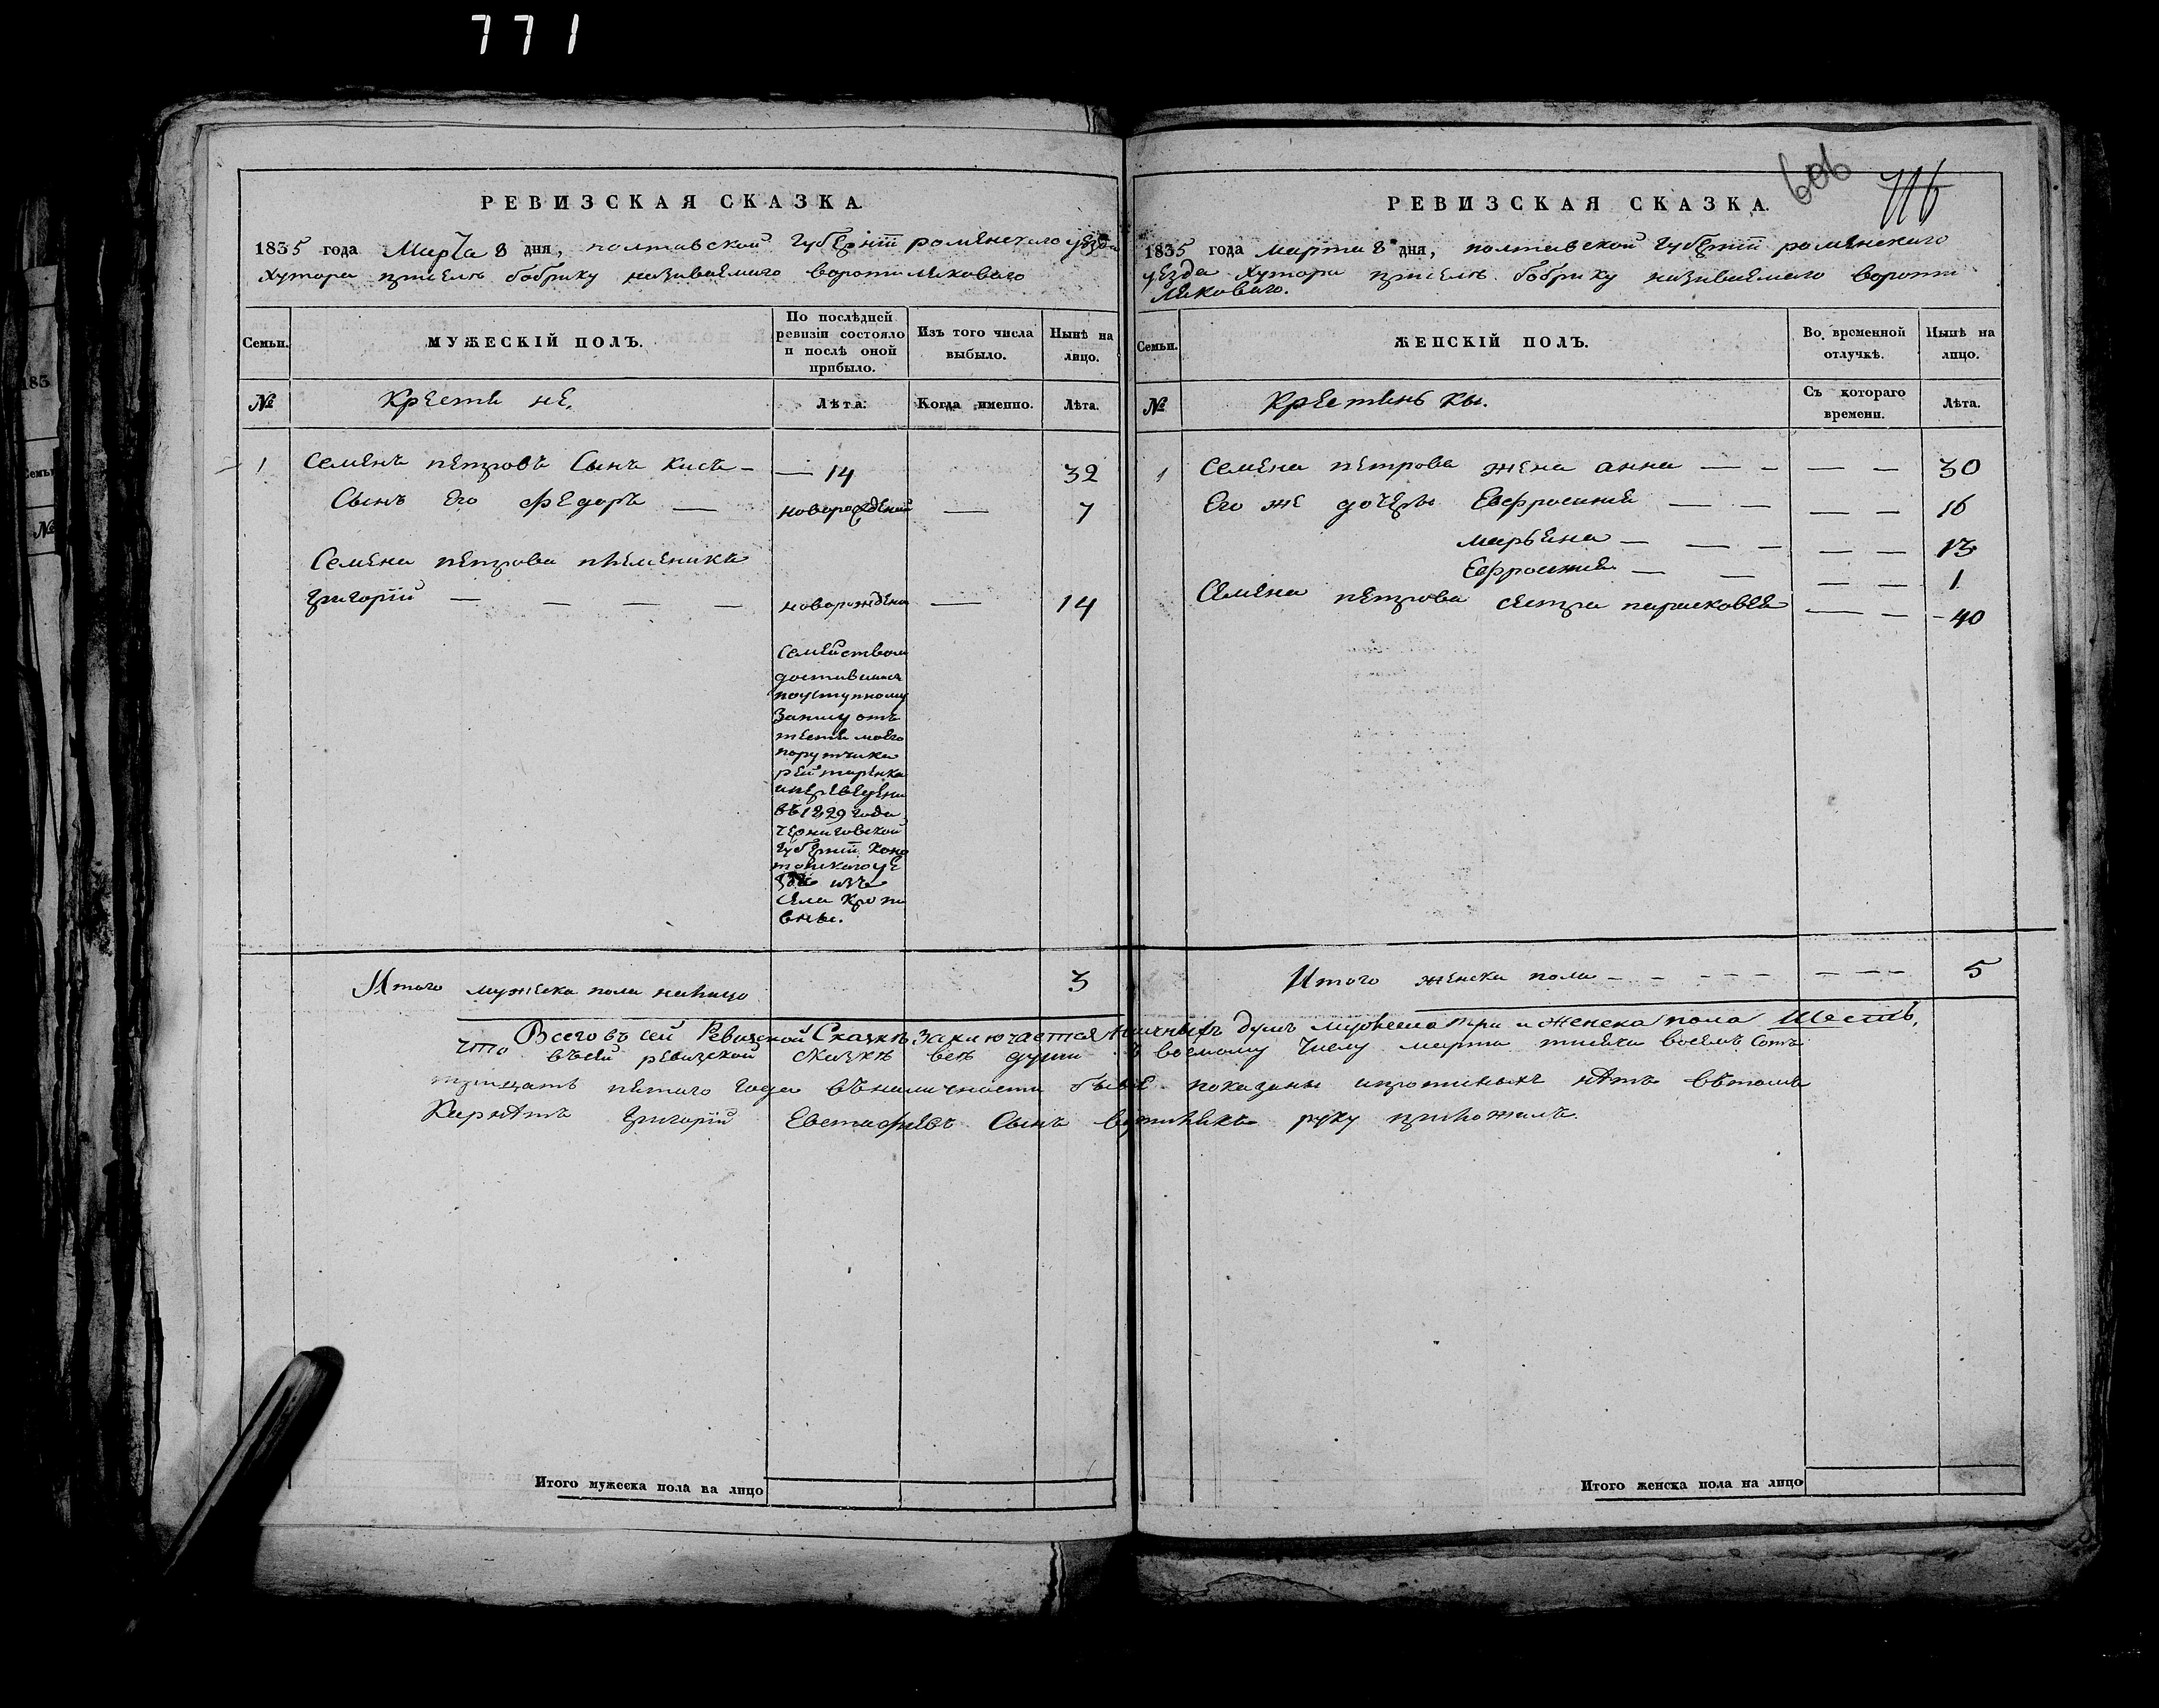 771
606
716
РЕВИЗСКАЯ СКАЗКА.
1835 года Марта 8 дня, полтавской губернїи роменского уезда
хутора приселъ бобрику називаемого воротиляковаго
Семьи.
МУЖЕСКІЙ ПОЛЪ.
По послѣдней ревизіи состояло и послѣ оной прибыло.
Изъ того числа выбыло.
Нынѣ на лицо.
№
Крестяне.
Лѣта.
Когда именно.
Лѣта.
1 Семенъ петровъ Сынъ — 14 32
Сынъ Его Федоръ — новорожденый — 7
Семена петрова племеникъ
григорїй — — — — новорожденъ — 14
Семействомъ
доставшися
поуступному
Запису отъ
тестя моего
порутчика
въ 1829 года
Черниговской
губернїи Коно
топского уе
зда изъ
села Кропи
вны.
Итого мужеска пола налицо 3
РЕВИЗСКАЯ СКАЗКА.
1835 года марта 8 дня, полтавской губернїи роменского
уезда хутора приселъ бобрику називаемого вороти
ляковаго.
Семьи.
ЖЕНСКІЙ ПОЛЪ.
Во временной отлучкѣ.
Нынѣ на лицо.
№
Крестянъ кы.
Съ котораго времени.
Лѣта.
1 Семена петрова жена анна — — — — 30
Его же дочеры Евфросиния — — — — 16
марьяна — — — — — 13
Ефросиния — — — — 1
Семена петрова сестра парасковея — — 40
Итого женска пола — — — — — — — — 5
Всего въ сей Ревизской Сказкѣ заключается наличныхъ душъ мужеска три и женска пола Шесть.
Что въсей ревизской сказкѣ всѣ души къ восмому числу марта тисяча восемъ сотъ
тридцать пятого года въналичности бывшие показаны ипропиныхъ нѣтъ вътомъ
Корнетъ григорїй Евстафиевъ Сынъ руку приложилъ
Итого мужеска пола на лицо
Итого женска пола на лицо